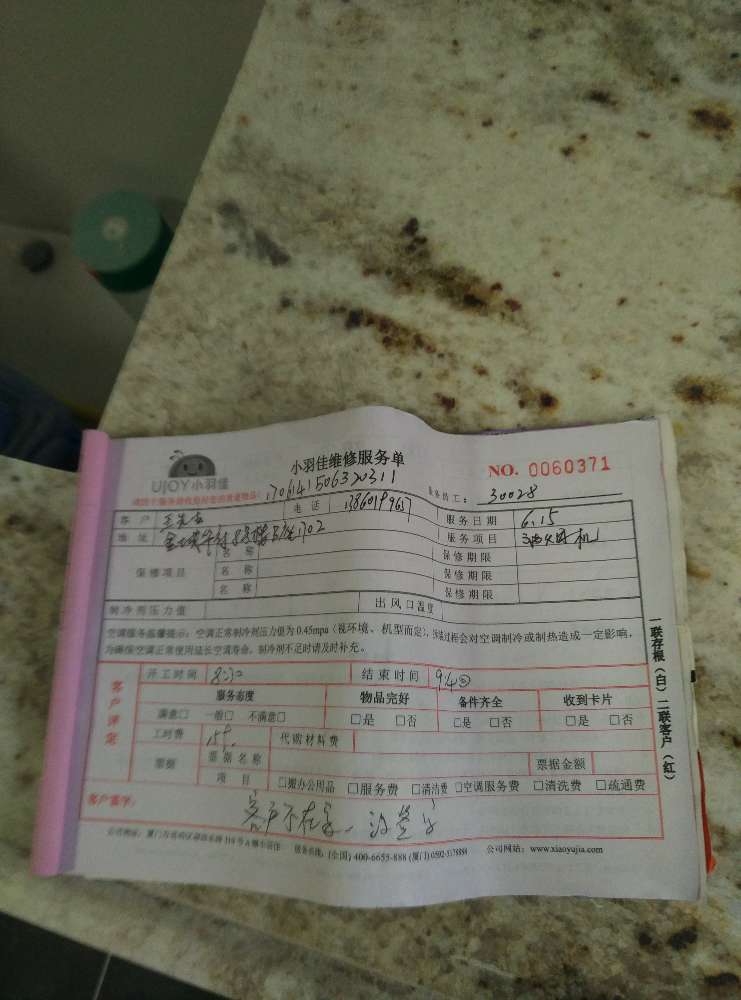 UJOY小羽佳
小羽佳维修服务单
NO. 0060371
1706141506320311
服务员工： 30028
客 户 电 话 服务日期 6.15
地 址 1702 服务项目
保修项目 名 称 保修期限
名 称 保修期限
名 称 保修期限
制冷剂压力值 出风口温度
空调服务温馨提示：空调正常制冷剂压力值为0.45mpa（视环境、机型而定），过程会对空调制冷或制热造成一定影响，
为确保空调正常使用延长空调寿命，制冷剂不足时请及时补充。
客户评定
开工时间 结束时间
服务态度 物品完好 备件齐全 收到卡片
满意□ 一般□ 不满意□ □是 □否 □是 □否 □是 □否
工时费 代购材料费
票据 票据名称 票据金额
项 目 □搬办公用品 □服务费 □清洁费 □空调服务费 □清洗费 □疏通费
客户签字：
客户不在家，没签字
(全国) 400-6655-888 公司网站：www.xiaoyujia.com
一联存根（白）二联客户（红）